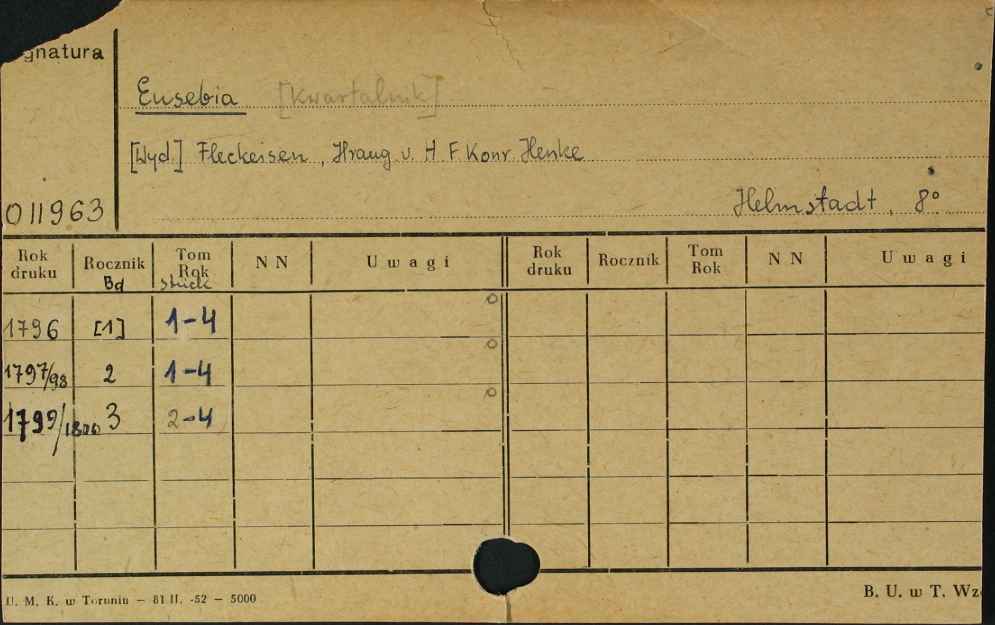 gnatura
Eusebia [Kwartalnik]
[Wyd.] Fleckeisen, Hraug v. H. F. Konr. Henke
Helmstadt, 8°
011963
Rok druku Rocznik Bd Tom Rok stück N N Uwagi Rok druku Rocznik Tom Rok N N Uwagi
1796 [1] 1-4
1797/98 2 1-4
1799/1800 3 2-4
U. M. K. w Toruniu — 81 II. -52 — 5000
B. U. w T. Wz